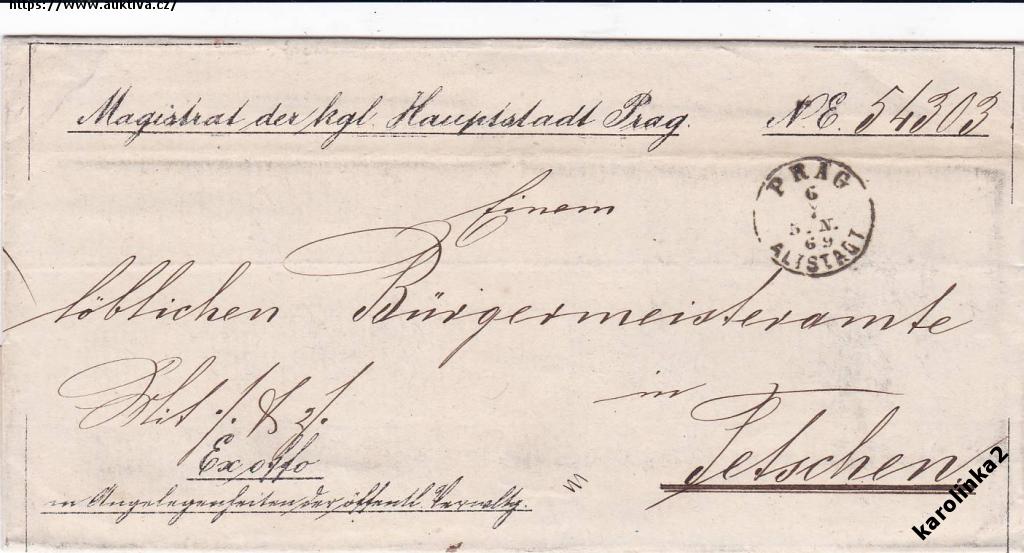 https://www.auktiva.cz/
Magistrat der kgl. Hauptstadt Prag. N.E. 54303
PRAG
6
5. N.
69
ALTSTADT
Einem
löblichen Bürgermeisteramte
Mit ./. & 2/.
in
Ex offo
Tetschen
in Angelegenheiten der öffentl. Verwaltg.
karolinka2